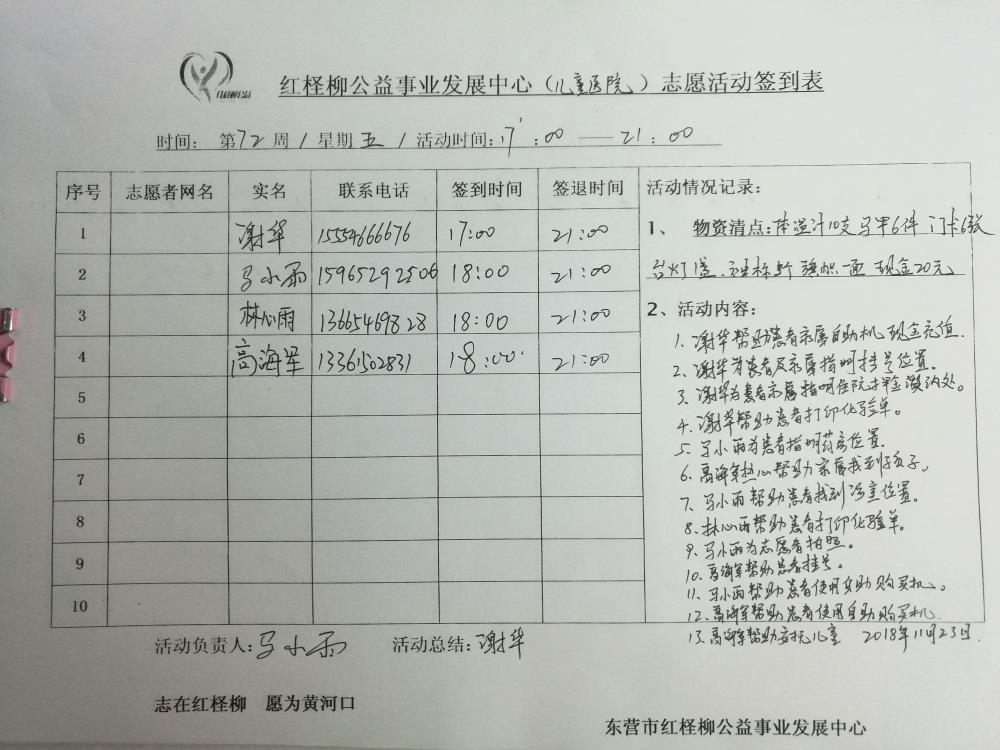 红柽柳公益
红柽柳公益事业发展中心（儿童医院）志愿活动签到表
时间： 第72周 / 星期五 / 活动时间：17：00 —— 21：00
序号 志愿者网名 实名 联系电话 签到时间 签退时间
1 谢华 15554666676 17:00 21:00
2 马小雨 15965292506 18:00 21:00
3 林心雨 13665469828 18:00 21:00
4 高海军 13361502831 18:00 21:00
5
6
7
8
9
10
活动情况记录：
1、 物资清点：体温计10支 马甲6件 门卡6张
台灯 旗帜一面 现金20元
2、活动内容：
1、谢华帮助患者亲属自助机现金充值.
2、谢华为患者及亲属指明挂号位置。
3、谢华为患者亲属指明住院押金缴纳处。
4、谢华帮助患者打印化验单。
5、马小雨为患者指明药房位置.
6、高海军热心帮助家属找到孩子。
7、马小雨帮助患者找到 位置。
8、林心雨帮助患者打印化验单。
9、马小雨为志愿者拍照。
10、高海军帮助患者挂号。
11、马小雨帮助患者使用自助购买机。
12、高海军帮助患者使用自助购买机.
13、高海军帮助 儿童 2018年11月23日.
活动负责人：马小雨 活动总结：谢华
志在红柽柳 愿为黄河口
东营市红柽柳公益事业发展中心